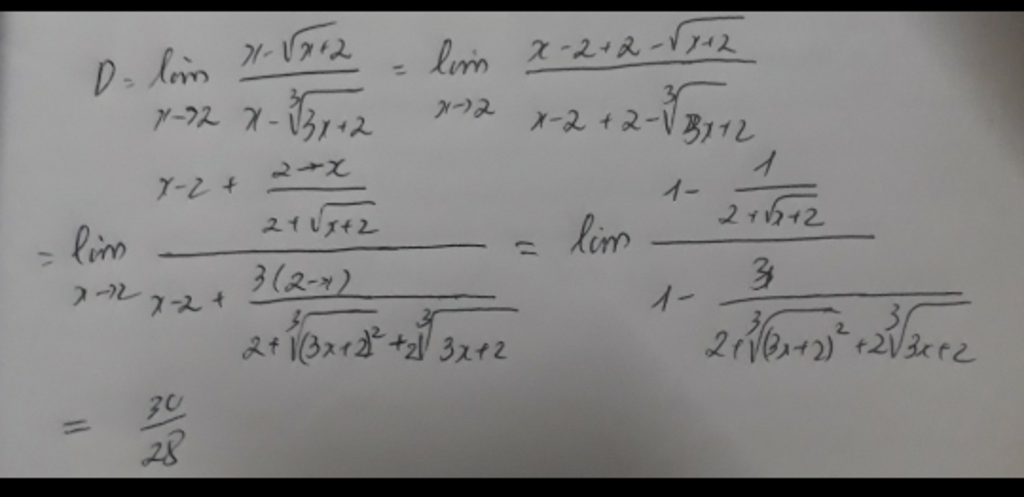 D = lim_{x→2} \frac{x-\sqrt{x+2}}{x-\sqrt[3]{3x+2}} = lim_{x→2} \frac{x-2+2-\sqrt{x+2}}{x-2+2-\sqrt[3]{3x+2}}
= lim_{x→2} \frac{x-2+\frac{2-x}{2+\sqrt{x+2}}}{x-2+\frac{3(2-x)}{2+\sqrt[3]{(3x+2)^2}+2\sqrt[3]{3x+2}}} = lim \frac{1-\frac{1}{2+\sqrt{x+2}}}{1-\frac{3}{2+\sqrt[3]{(3x+2)^2}+2\sqrt[3]{3x+2}}}
= \frac{30}{28}